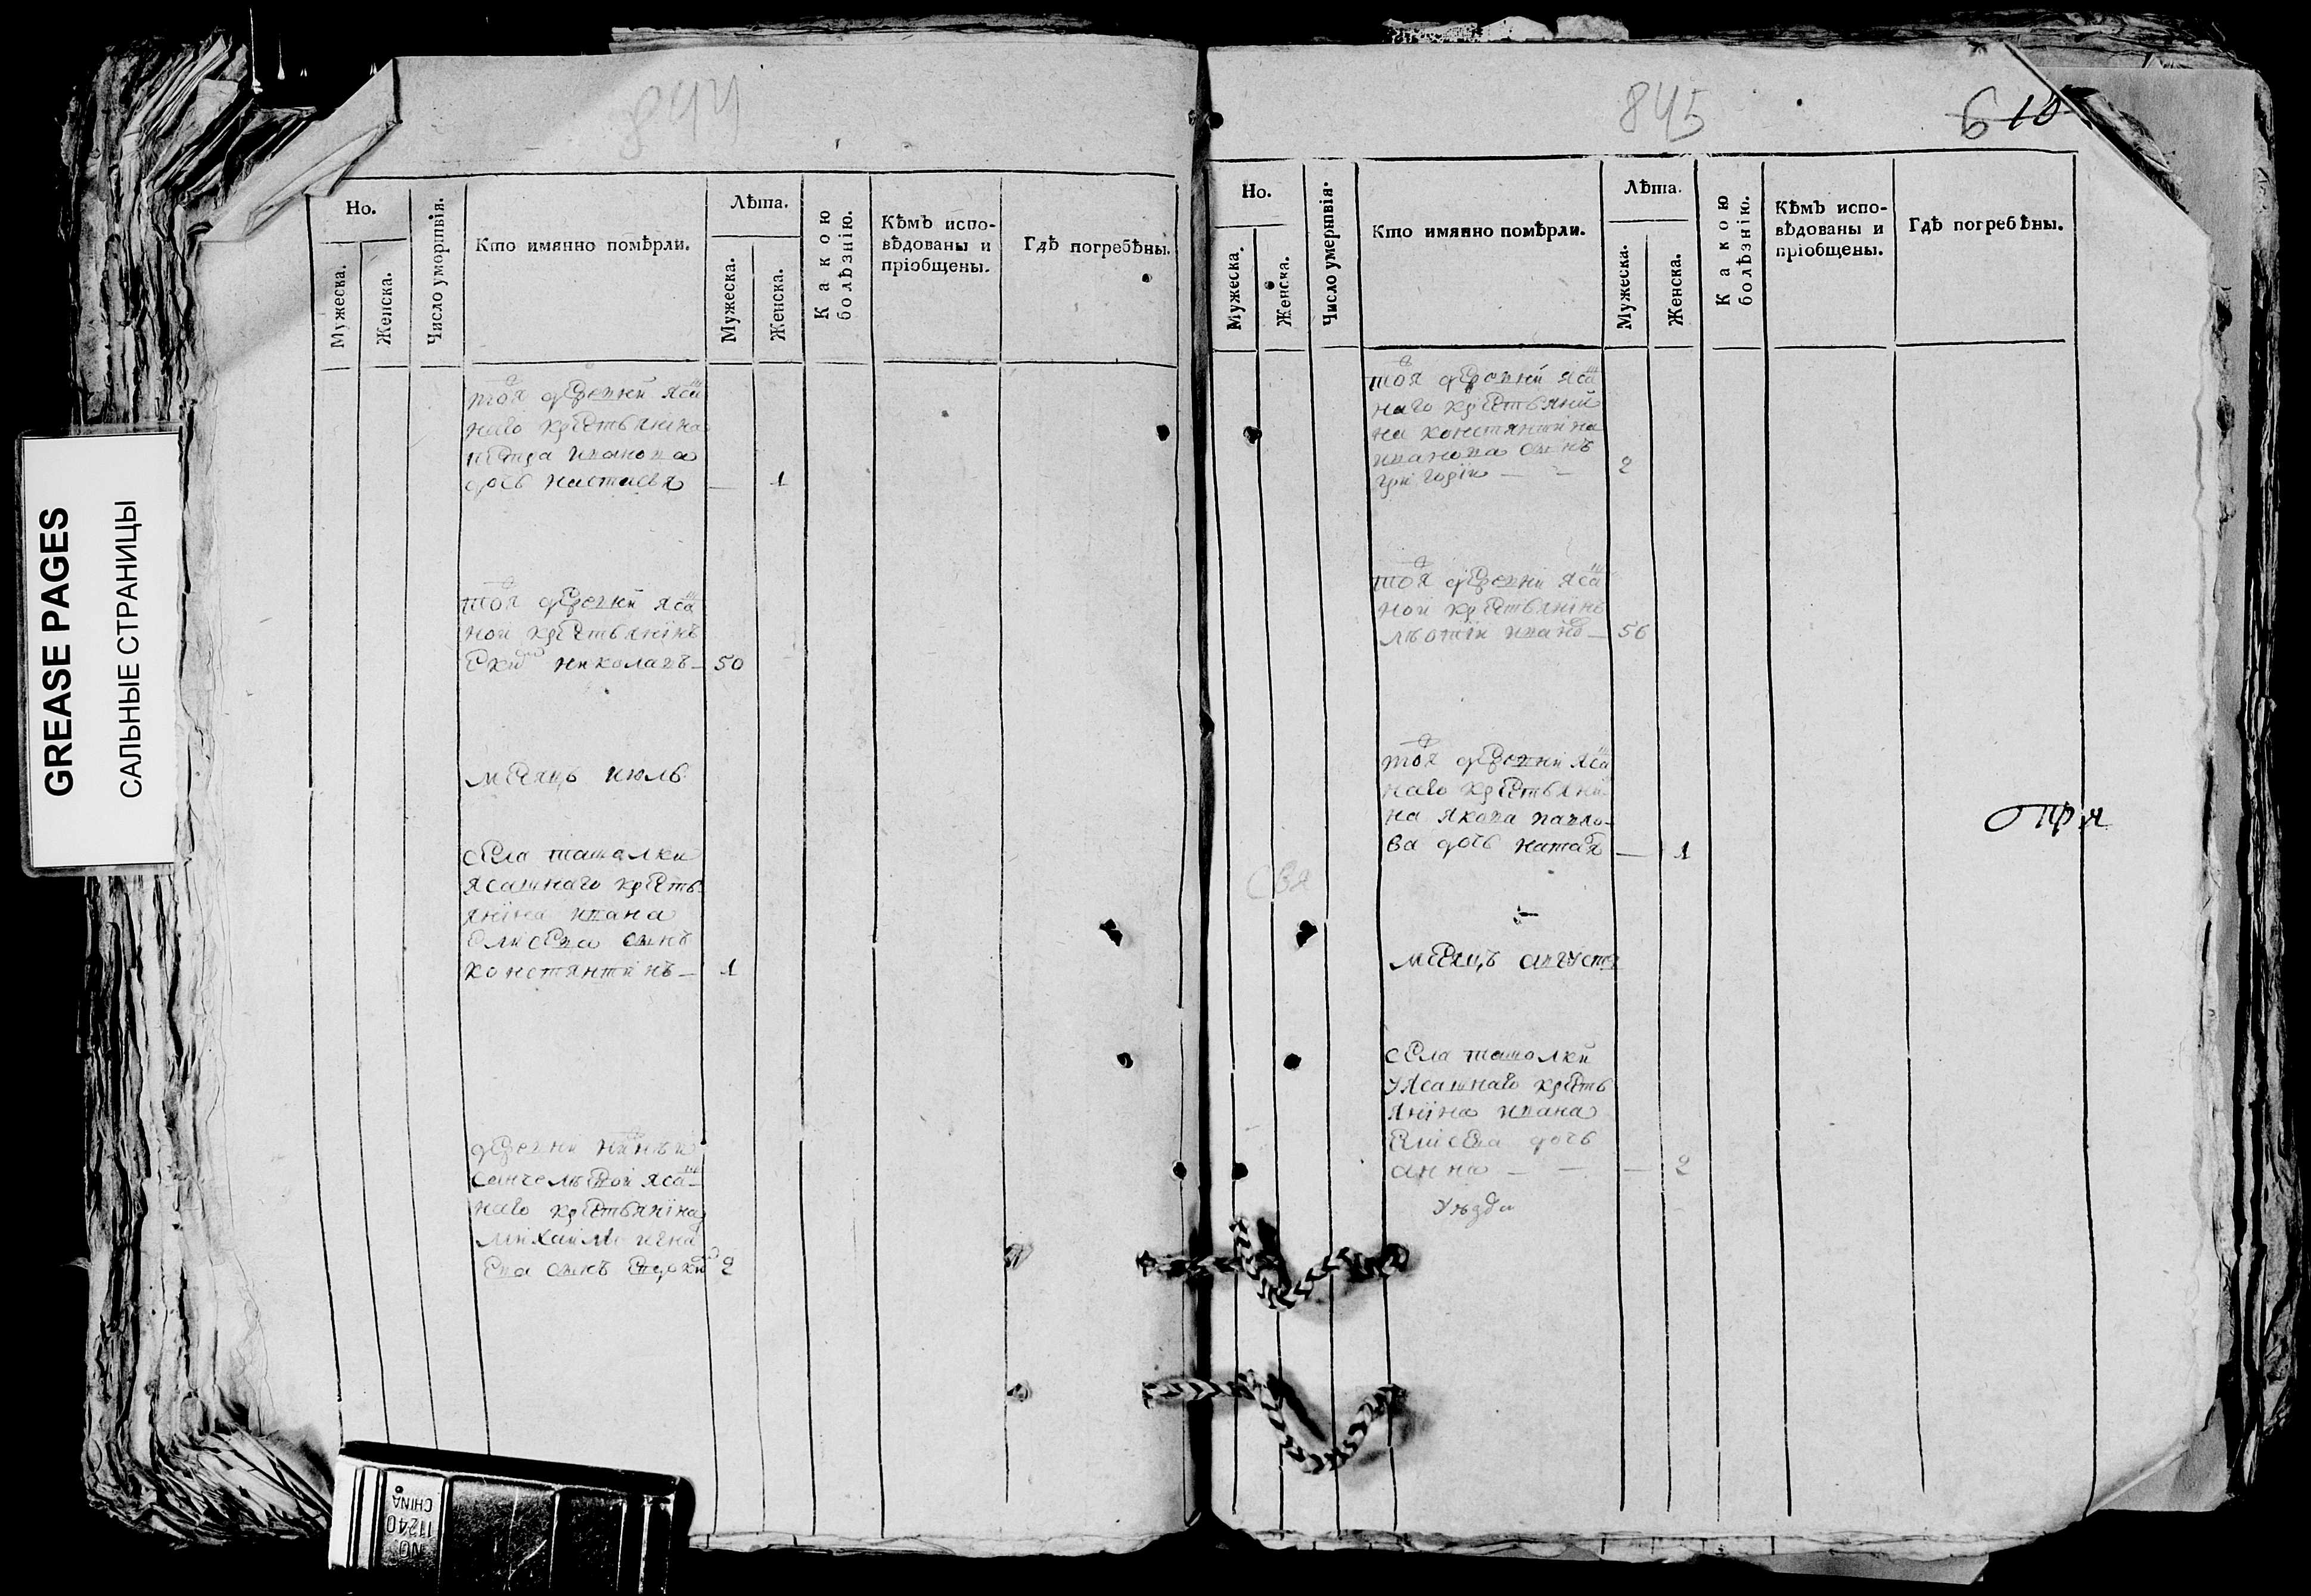 GREASE PAGES
САЛЬНЫЕ СТРАНИЦЫ
844
Но.
Мужеска.
Женска.
Число умертвія.
Кто имянно помѣрли.
Лѣта.
Мужеска.
Женска.
Какою болѣзнію.
Кѣмъ испо-
вѣдованы и
пріобщены.
Гдѣ погребѣны.
тоя деревни ясаш
наго крестьянина
петра иванова
дочь настасья — 1
тоя деревни ясаш
ной крестьянинъ
николаевъ — 50
месяцъ июль
села ташолки
ясашнаго кресть
янина ивана
елисеева сынъ
константинъ — 1
деревни
ясаш
наго крестьянина
михаила игна
ева сынъ 2
845
610
Но.
Мужеска.
Женска.
Число умертвія.
Кто имянно помѣрли.
Лѣта.
Мужеска.
Женска.
Какою болѣзнію.
Кѣмъ испо-
вѣдованы и
пріобщены.
Гдѣ погребѣны.
тоя деревни ясаш
наго крестьяни
на константина
иванова сынъ
григорїи — — 2
тоя деревни ясаш
ной крестьянинъ
иванов — 56
тоя деревни ясаш
наго крестьяни
на якова павло-
ва дочь наталя — 1
месяцъ августъ
села ташолки
ясашнаго кресть
янина ивана
елисеева дочь
анна — — — 2
уезда
NO 11240
CHINA